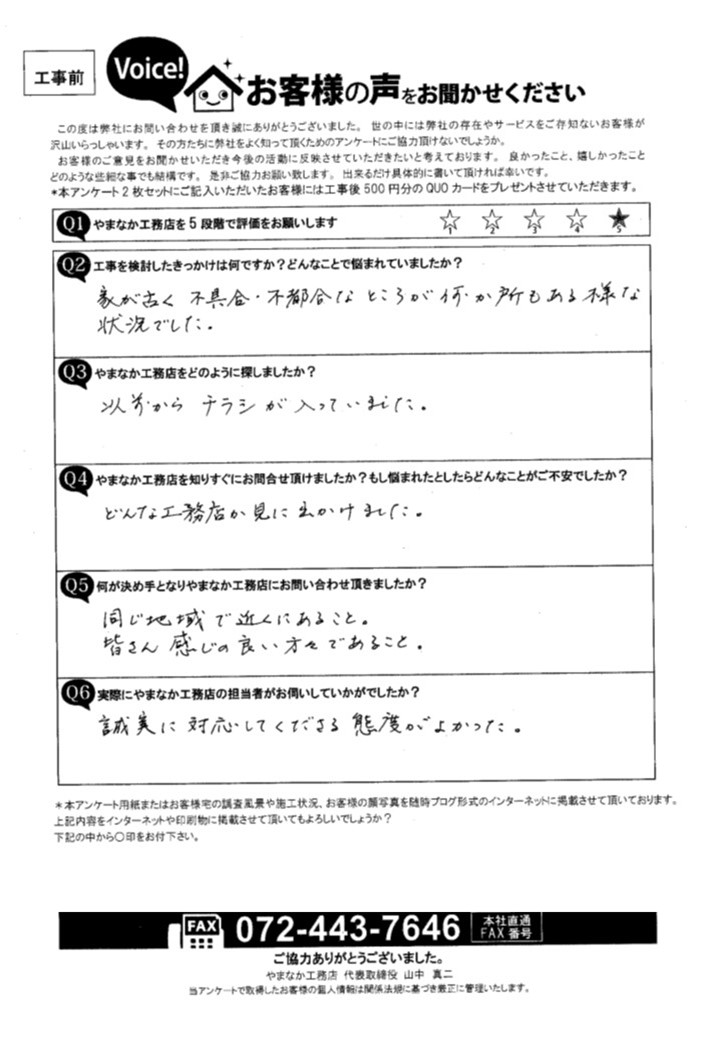 工事前
Voice!
お客様の声をお聞かせください
この度は弊社にお問い合わせを頂き誠にありがとうございました。 世の中には弊社の存在やサービスをご存知ないお客様が
沢山いらっしゃいます。 その方たちに弊社をよく知って頂くためのアンケートにご協力頂けないでしょうか。
お客様のご意見をお聞かせいただき今後の活動に反映させていただきたいと考えております。 良かったこと、嬉しかったこと
どのような些細な事でも結構です。 是非ご協力お願い致します。 出来るだけ具体的に書いて頂ければ幸いです。
*本アンケート2枚セットにご記入いただいたお客様には工事後500円分のQUOカードをプレゼントさせていただきます。
Q1 やまなか工務店を5段階で評価をお願いします 1 2 3 4 5
Q2 工事を検討したきっかけは何ですか?どんなことで悩まれていましたか?
家が古く 不具合・不都合な ところが何か所もある様な
状況でした。
Q3 やまなか工務店をどのように探しましたか?
以前から チラシが入っていました。
Q4 やまなか工務店を知りすぐにお問合せ頂けましたか?もし悩まれたとしたらどんなことがご不安でしたか?
どんな工務店か見に出かけました。
Q5 何が決め手となりやまなか工務店にお問い合わせ頂きましたか?
同じ地域で近くにあること。
皆さん 感じの良い方々であること。
Q6 実際にやまなか工務店の担当者がお伺いしていかがでしたか?
誠実に対応してくださる態度がよかった。
*本アンケート用紙またはお客様宅の調査風景や施工状況、お客様の顔写真を随時ブログ形式のインターネットに掲載させて頂いております。
上記内容をインターネットや印刷物に掲載させて頂いてもよろしいでしょうか?
下記の中から○印をお付下さい。
FAX 072-443-7646 本社直通
FAX番号
ご協力ありがとうございました。
やまなか工務店 代表取締役 山中 真二
当アンケートで取得したお客様の個人情報は関係法規に基づき厳正に管理いたします。